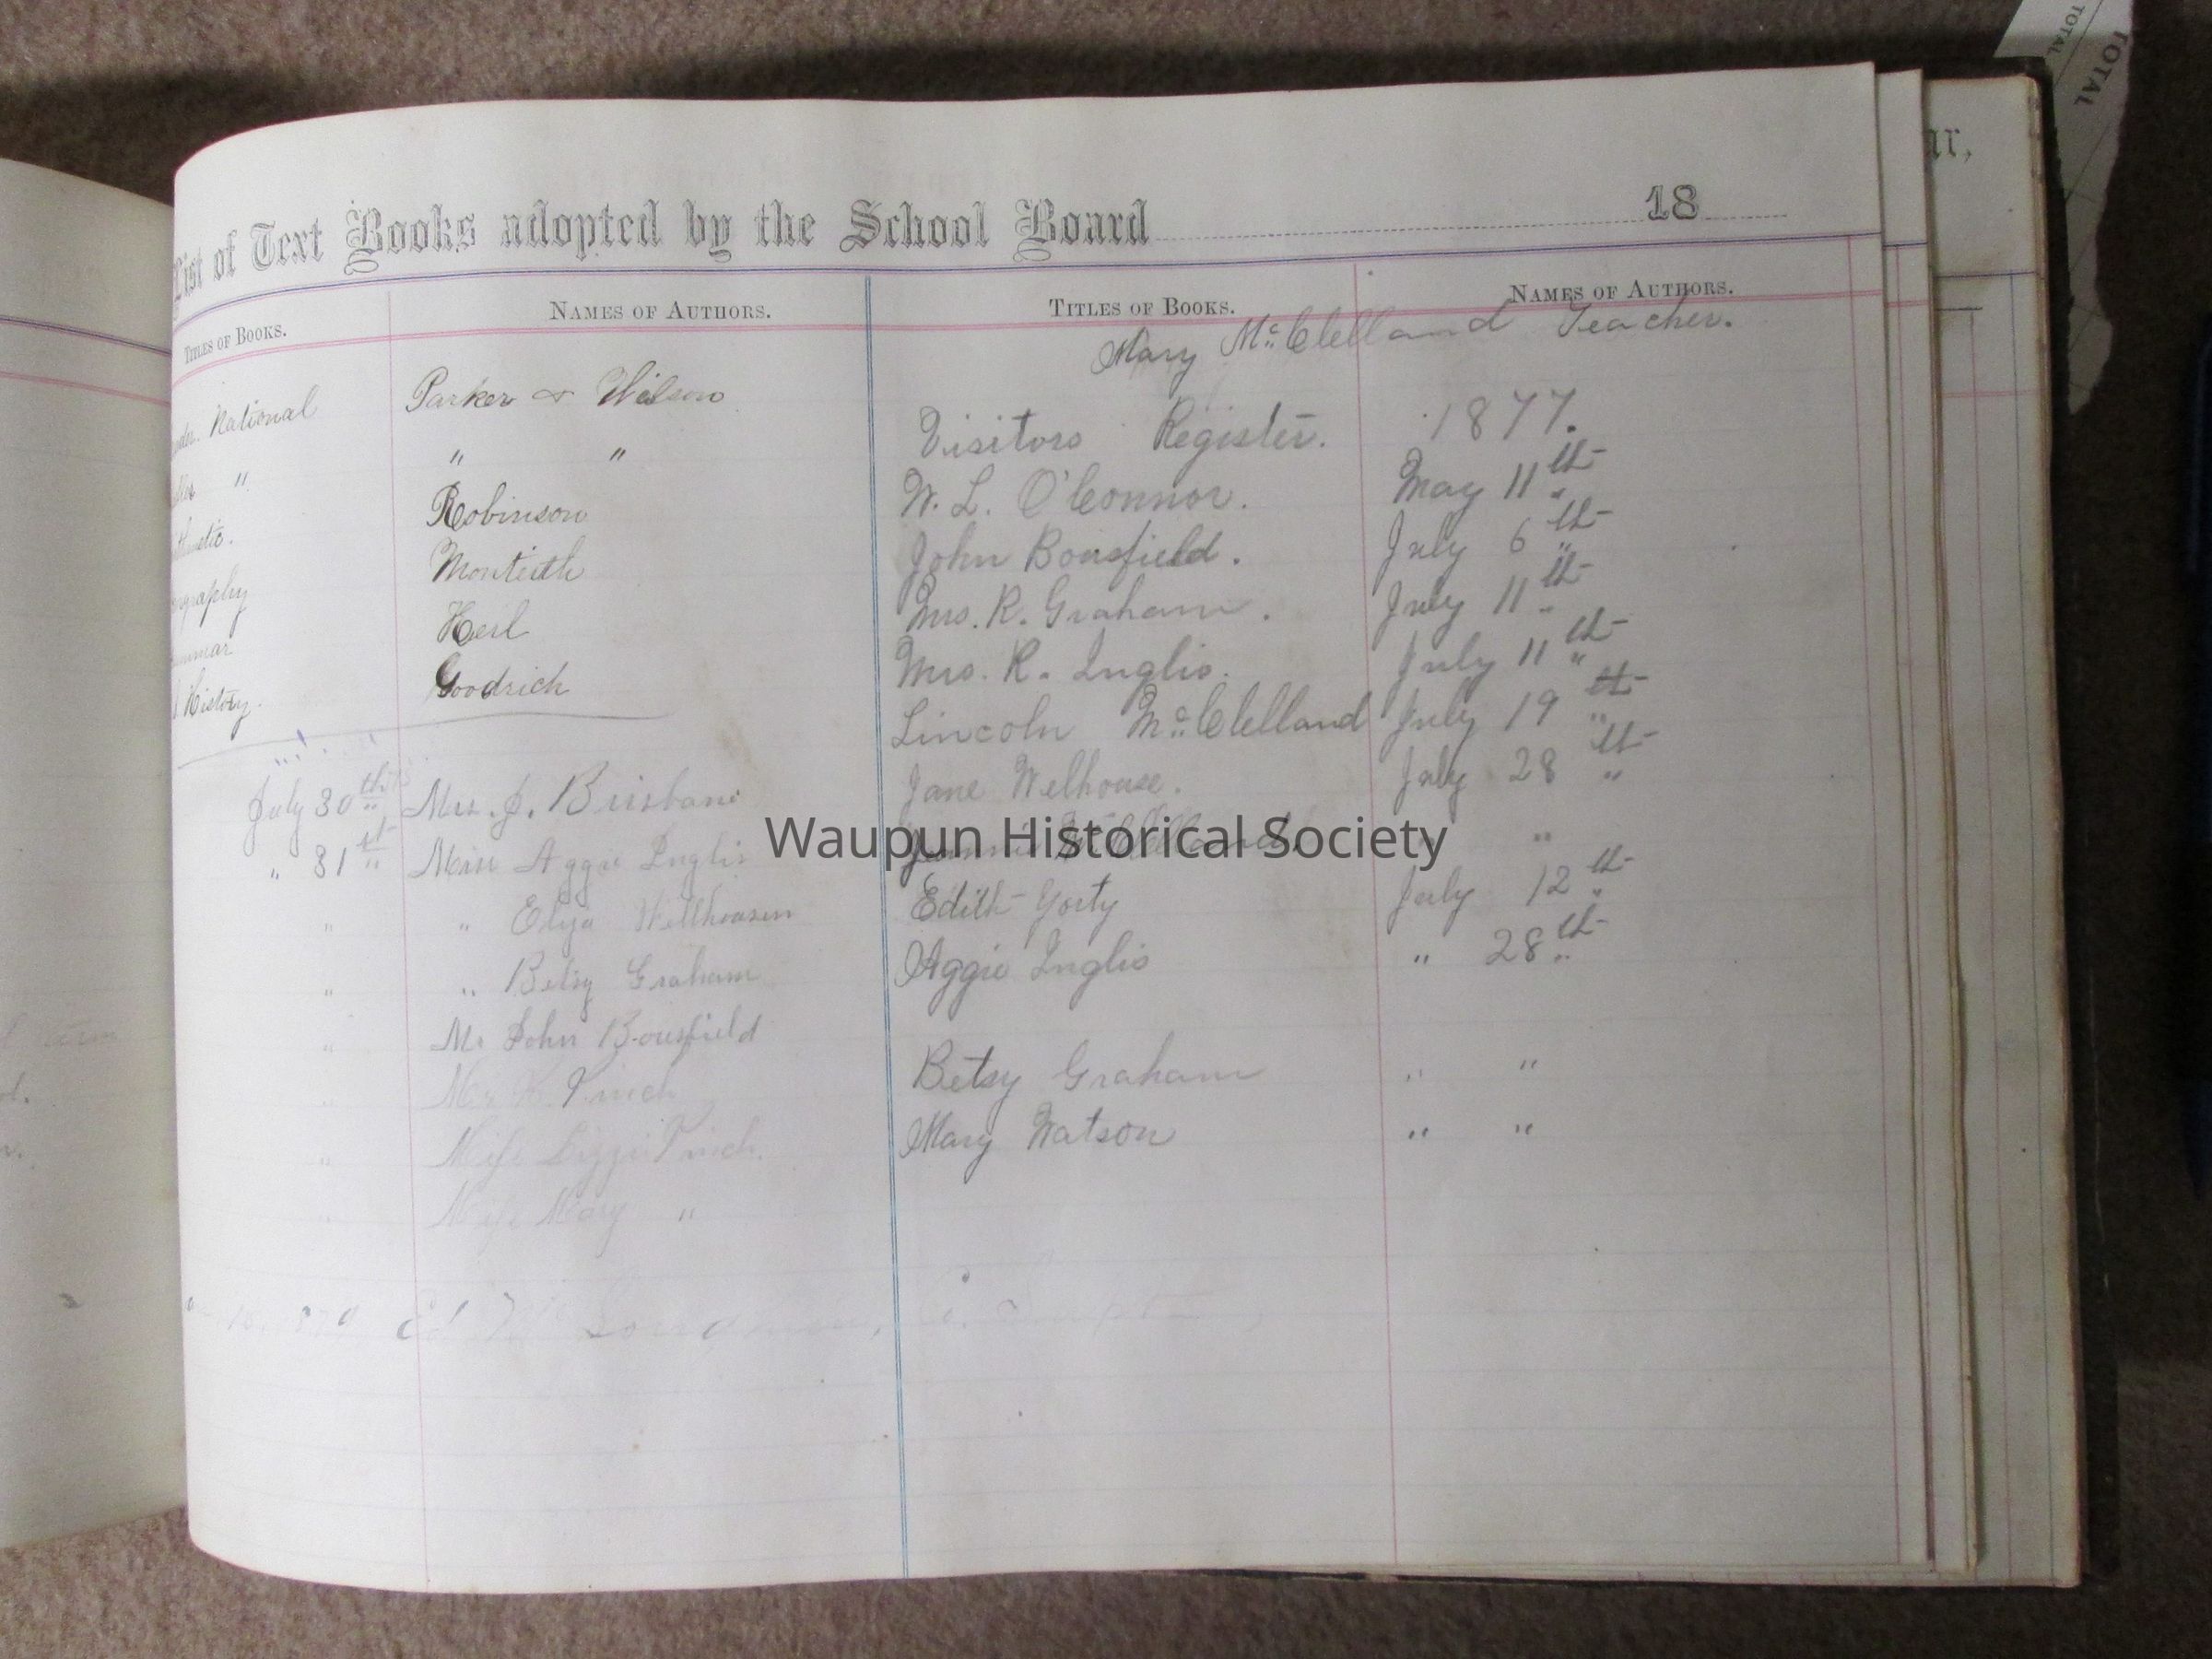 List of Text Books adopted by the School Board 18
Titles of Books. Names of Authors. Titles of Books. Names of Authors.
Mary McClelland Teacher.
National Parker & Wilson
" " "
Robinson
Monteith
Goodrich
History.
July 30th Mrs. J. Brisbane
" 31st Miss Aggie Inglis
" " Eliza Wellhousen
" " Betsy Graham
" Mr John Bousfield
" Finch
" Miss Lizzie Finch.
" Miss Mary "
Visitors Register. 1877.
W. L. O'Connor. May 11th
John Bousfield. July 6th
Mrs. R. Graham. July 11th
Mrs. R. Inglis. July 11th
Lincoln McClelland July 19th
Jane Welhouse. July 28th
Jennie McClelland. " "
Edith Yorty July 12th
Aggie Inglis " 28th
Betsy Graham " "
Mary Watson " "
Waupun Historical Society
TOTAL
TOTAL
ar,